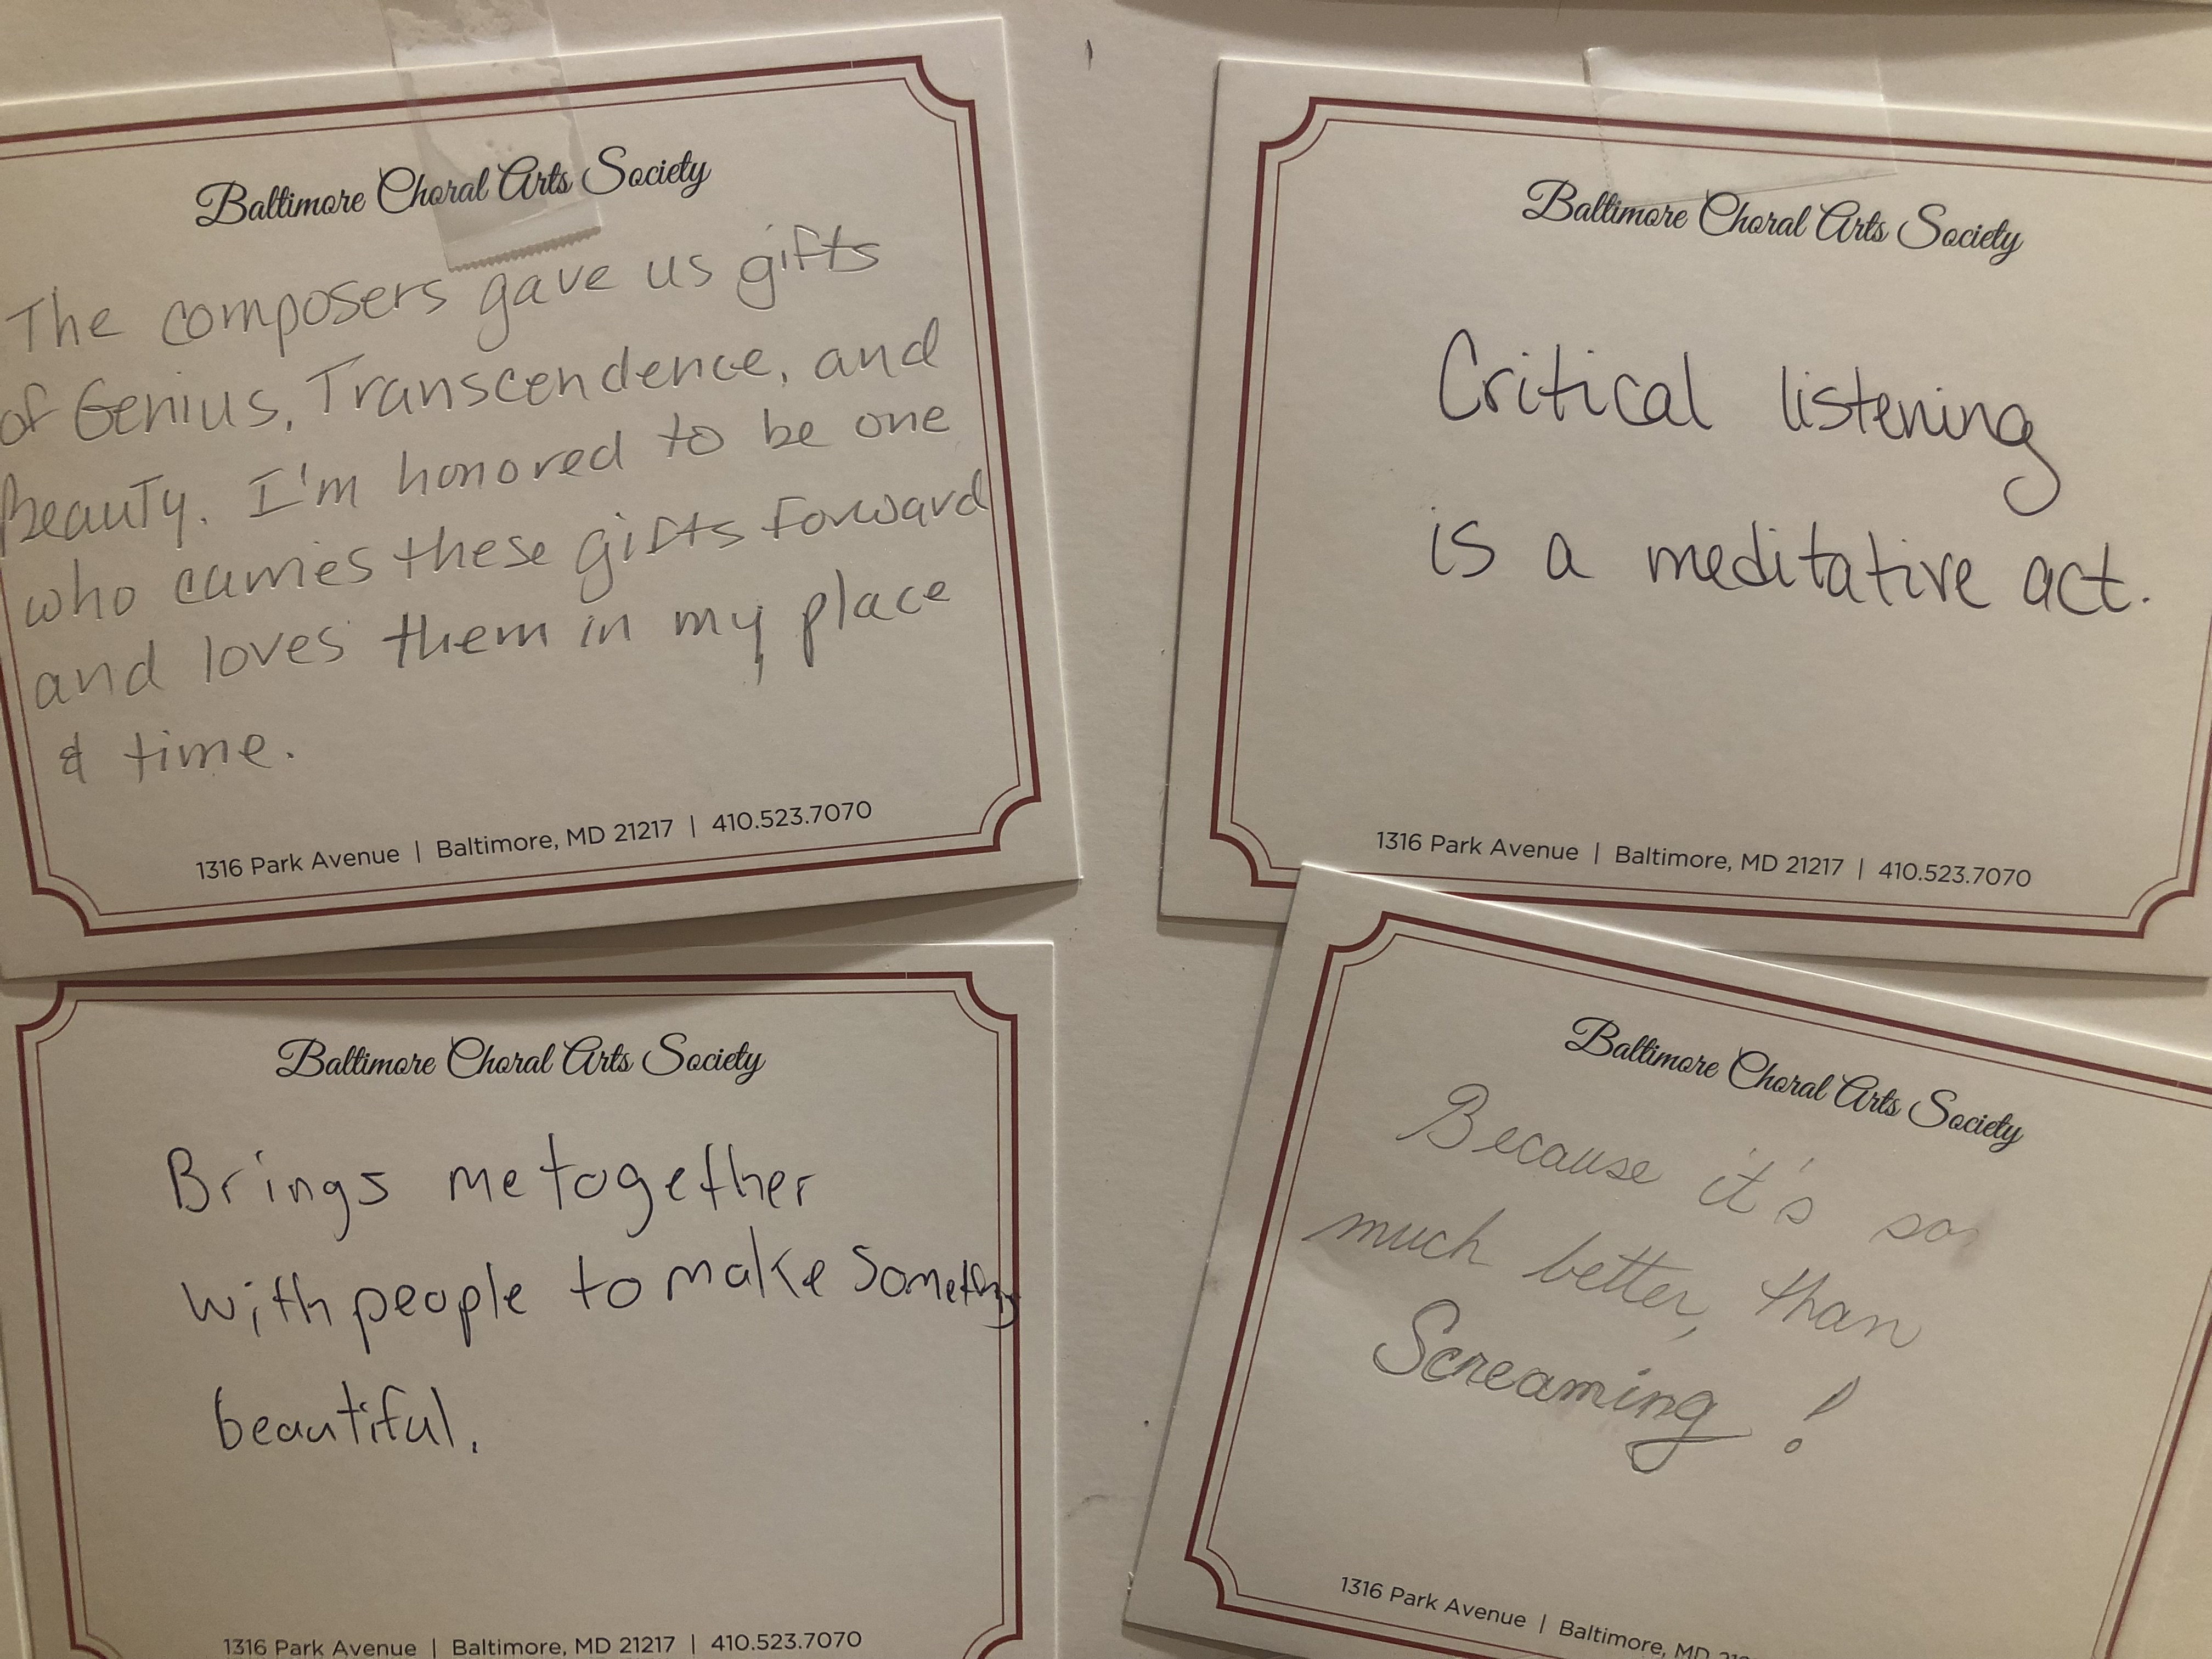 Baltimore Choral Arts Society
The composers gave us gifts
of Genius, Transcendence, and
Beauty. I'm honored to be one
who carries these gifts forward
and loves them in my place
& time.
1316 Park Avenue | Baltimore, MD 21217 | 410.523.7070
Baltimore Choral Arts Society
Critical listening
is a meditative act.
1316 Park Avenue | Baltimore, MD 21217 | 410.523.7070
Baltimore Choral Arts Society
Brings me together
with people to make something
beautiful.
1316 Park Avenue | Baltimore, MD 21217 | 410.523.7070
Baltimore Choral Arts Society
Because it's so
much better, than
Screaming!
1316 Park Avenue | Baltimore, MD